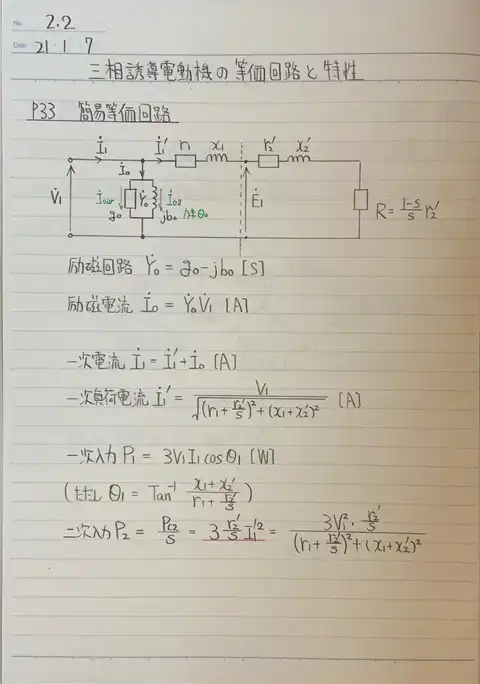 No. 2.2
Date 21・1・7
三相誘導電動機の等価回路と特性
P33 簡易等価回路
İ₁ İ₁' r₁ x₁ r₂' x₂'
İ₀
V̇₁ Ẏ₀ Ė₁ R = (1-s)/s r₂'
g₀ jb₀ 力率θ₀
励磁回路 Ẏ₀ = g₀-jb₀ [S]
励磁電流 İ₀ = Ẏ₀V̇₁ [A]
一次電流 İ₁ = İ₁'+İ₀ [A]
一次負荷電流 İ₁' = V₁/√((r₁+r₂'/s)²+(x₁+x₂')²) [A]
一次入力 P₁ = 3V₁I₁cosθ₁ [W]
(ただし θ₁ = Tan⁻¹ (x₁+x₂')/(r₁+r₂'/s))
二次入力 P₂ = Pc₂/s = 3 r₂'/s I₁'² = (3V₁²・r₂'/s)/((r₁+r₂'/s)²+(x₁+x₂')²)